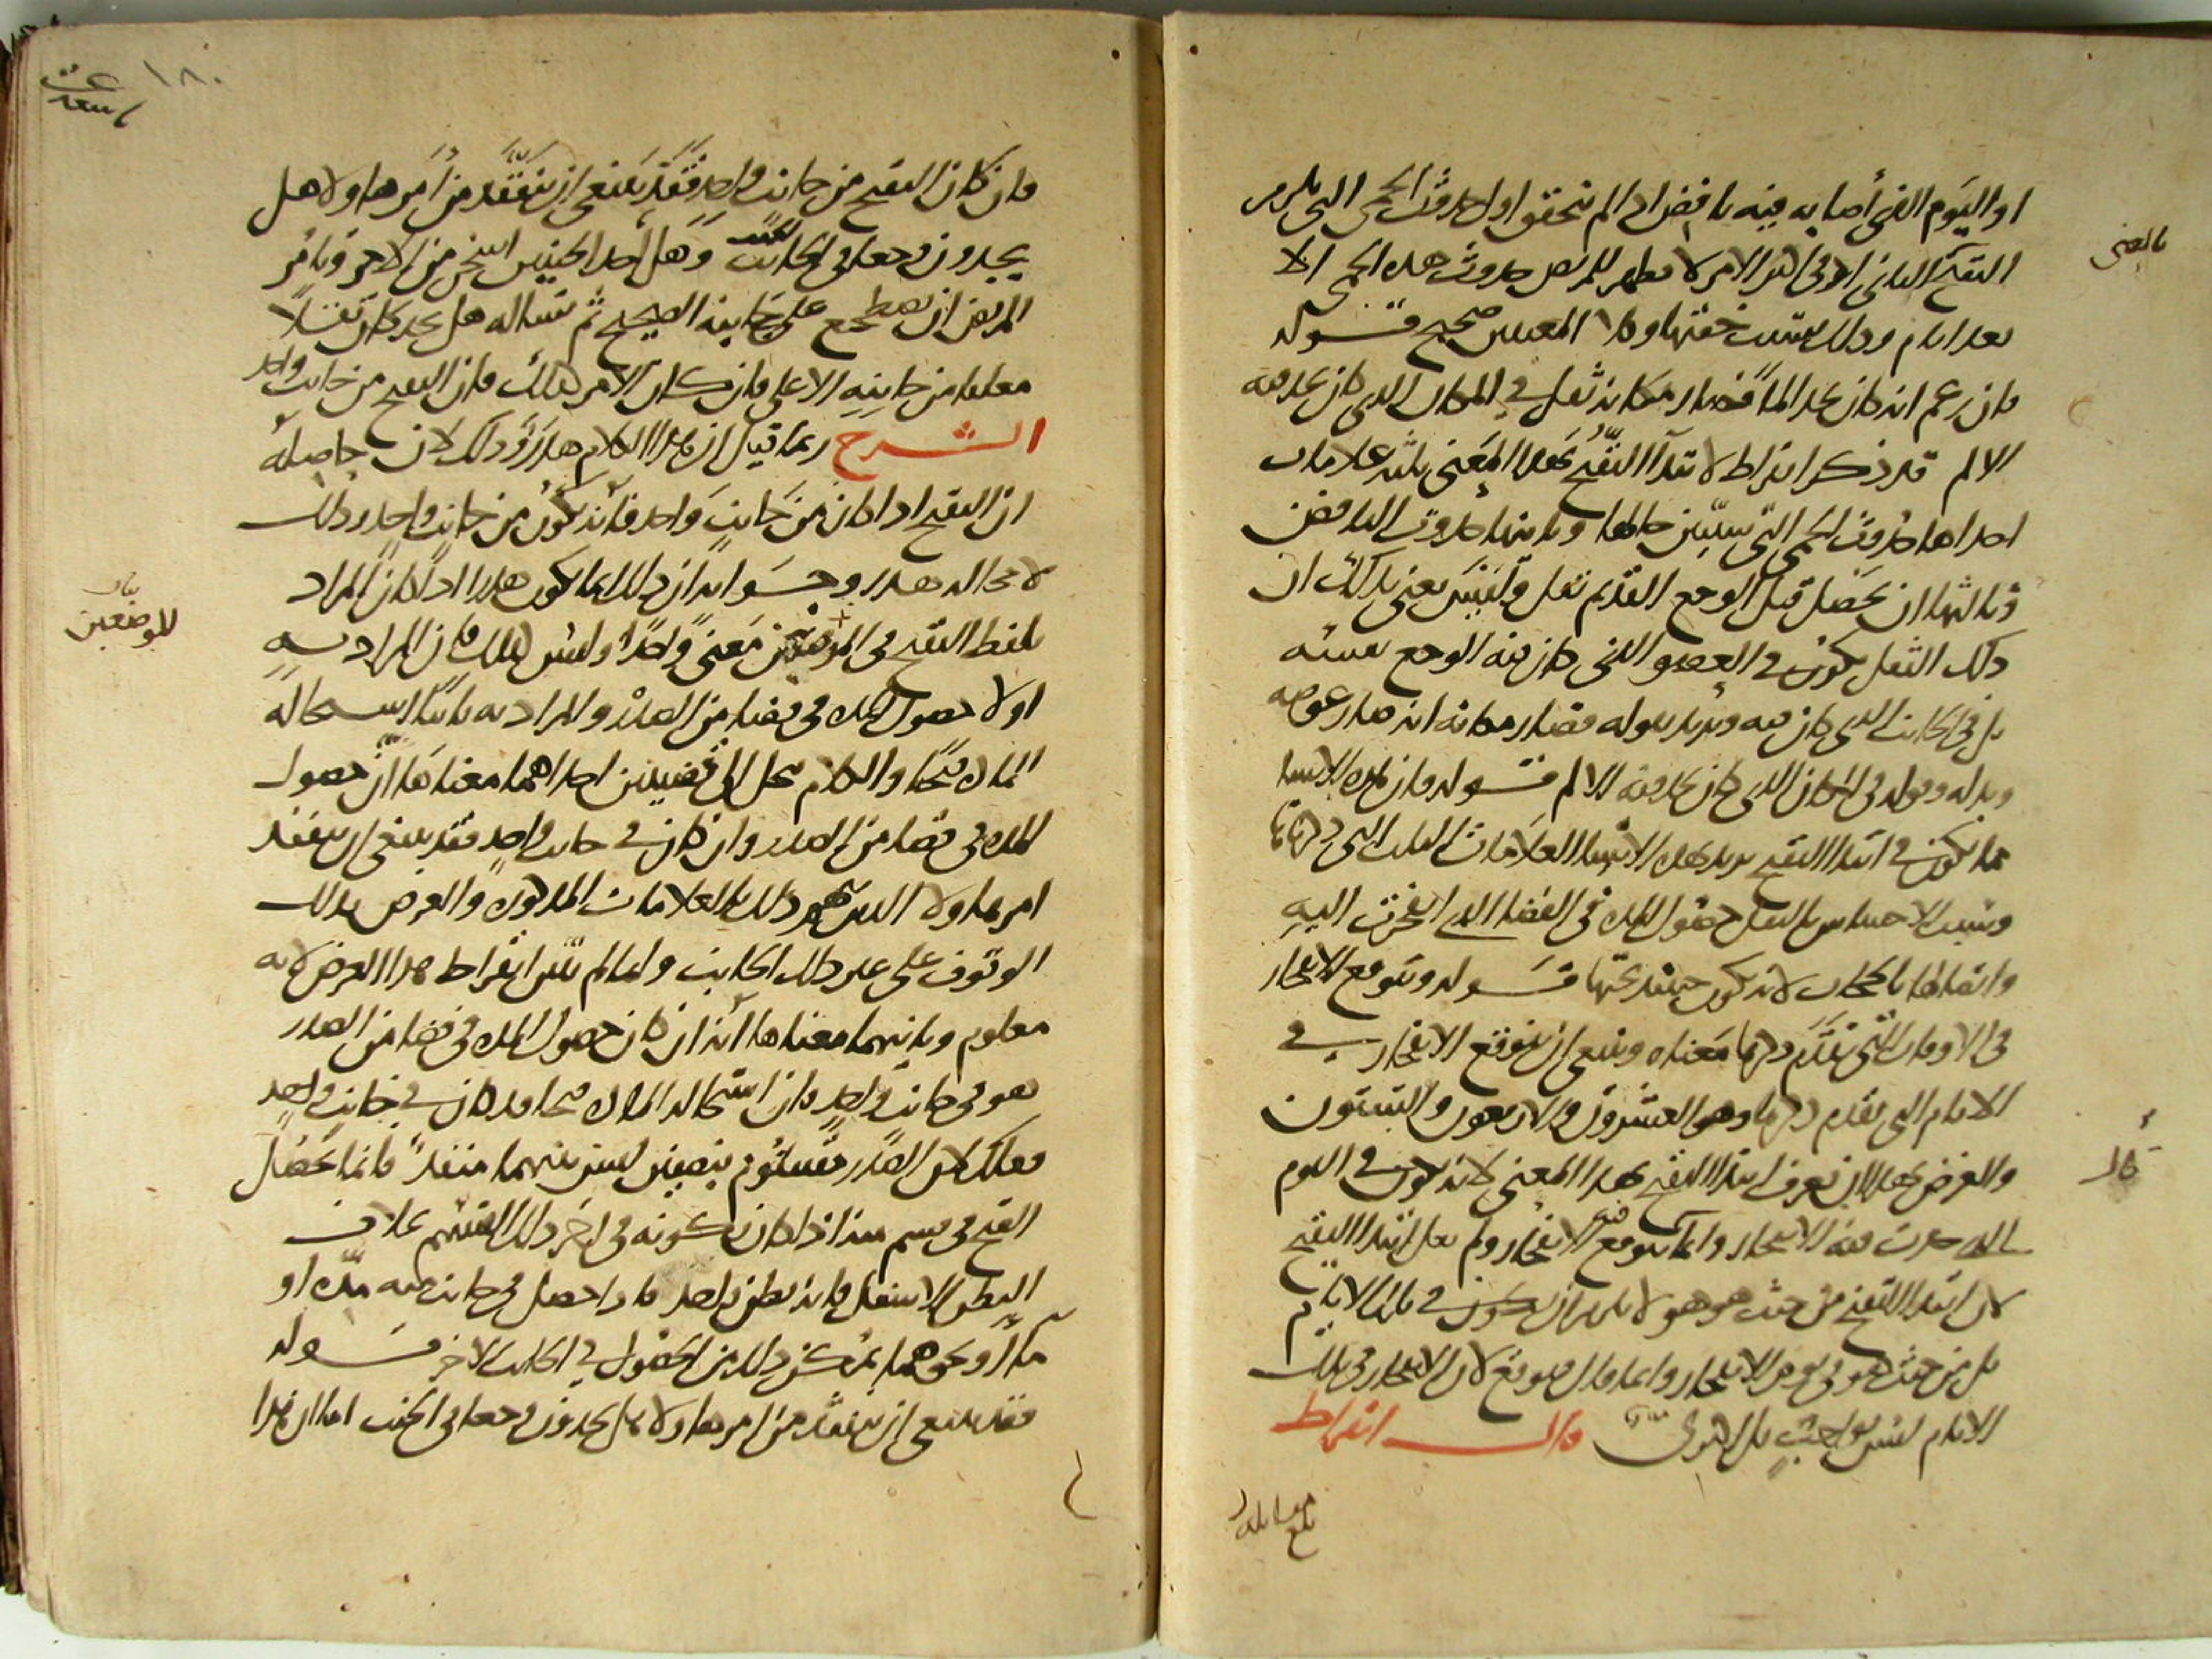 او اليوم الذى أصابه فيه نافض اذا لم يتحقق اول حدوث الحمى التى تلزم
التقيح الثانى اذ فى اكثر الامر لا يظهر للمريض حدوث هذه الحمى الا
بعد ايام وذلك بسبب خفتها وكلا المعنيين صحيح قوله
فان زعم انه كان يجد الما فصار مكانه ثقل فى المكان الذى كان يجد فيه
الالم قد ذكر ابقراط لابتداء التقيح بهذا المعنى ثلث علامات
احداها حدوث الحمى التى سنبين حالها وثانيتها حدوث النافض
وثالثها ان يحصل قبل الوجع القديم ثقل وليس يعنى بذلك ان
ذلك الثقل يكون فى العضو الذى كان فيه الوجع بعينه
بل فى الجانب الذى كان فيه ويريد بقوله فصار مكانه انه صار عوضه
وبدله وقوله فى المكان الذى كان يجد فيه الالم قوله فان هذه الاشيا
مما يكون فى ابتدا التقيح يريد بهذه الاشيا العلامات الثلث التى ذكرناها
وسبب الاحساس بالثقل حصول المدة فى الفضا الذى انفجرت اليه
واثقالها بالحجاب لانه يكون حينئذ تحتها قوله ويتوقع الانفجار
فى الاوقات التى تقدم ذكرها معناه وينبغى ان يتوقع الانفجار فى
الايام التى تقدم ذكرها وهو العشرون والاربعون والستون
والغرض بهذا ان يعرف ابتدا التقيح بهذا المعنى لانه يكون فى اليوم
الذى حدث فيه الانفجار وانما يتوقع فيه الانفجار ولم يقل ابتدا التقيح
لان ابتدا التقيح من حيث هو هو لا يلزم ان يكون فى تلك الايام
بل من حيث هو فى يوم الانفجار وانما قال يتوقع لان الانفجار فى تلك
الايام ليس بواجب بل اكثرى قال ابقراط
بالمعنى
قال
بلغ مقابلة
١٨٠
فان كان التقيح من جانب واحد فقد ينبغى ان يتفقد من امرها ولا هل
يجدون وجعا فى الجانب وهل احد الجنبين اسخن من الاخر ويامر
المريض ان يضطجع على جانبه الصحيح ثم تساله هل يجد كان ثقلا
معلقا من جانبه الاعلى فان كان الامر كذلك فان التقيح من جانب واحد
الشرح ربما قيل ان هذا الكلام هذر وذلك لان حاصله
ان التقيح اذا كان من جانب واحد فانه يكون من جانب واحد وذلك
لا محالة هذر وجوابه ان ذلك انما يكون هذرا اذا كان المراد
بلفظ التقيح فى الموضعين معنى واحدا وليس كذلك فان المراد به
اولا حصول المدة فى فضا من الصدر والمراد به ثانيا استحالة
المادة قيحا والكلام ينحل الى قضيتين احداهما معناها ان حصول
المدة فى فضا من الصدر وان كان فى جانب واحد فقد ينبغى ان يتفقد
امرها ولا الذى هو ذلك بالعلامات المذكورة والغرض بذلك
الوقوف على علة ذلك الجانب وانما لم يبين ابقراط هذا الغرض لانه
معلوم وثانيتهما معناها انه ان كان حصول المدة فى فضا من الصدر
هو فى جانب واحد فان استحالة المادة قيحا قد كان فى جانب واحد
وذلك لان الصدر مقسوم بنصفين ليس بينهما منفذ فانما يحصل
القيح فى قسم منه اذا كان تكونه فى اجزا ذلك القسم بخلاف
البطن الاسفل فانه بطن واحد فاذا حصل فى جانب منه مدة او
ماء او نحوهما يمكن ذلك من الحصول فى الجانب الاخر قوله
فقد ينبغى ان يتفقد من امرها ولا هل يجدون وجعا فى الجنب اما ان هذا
بيان
للموضعين